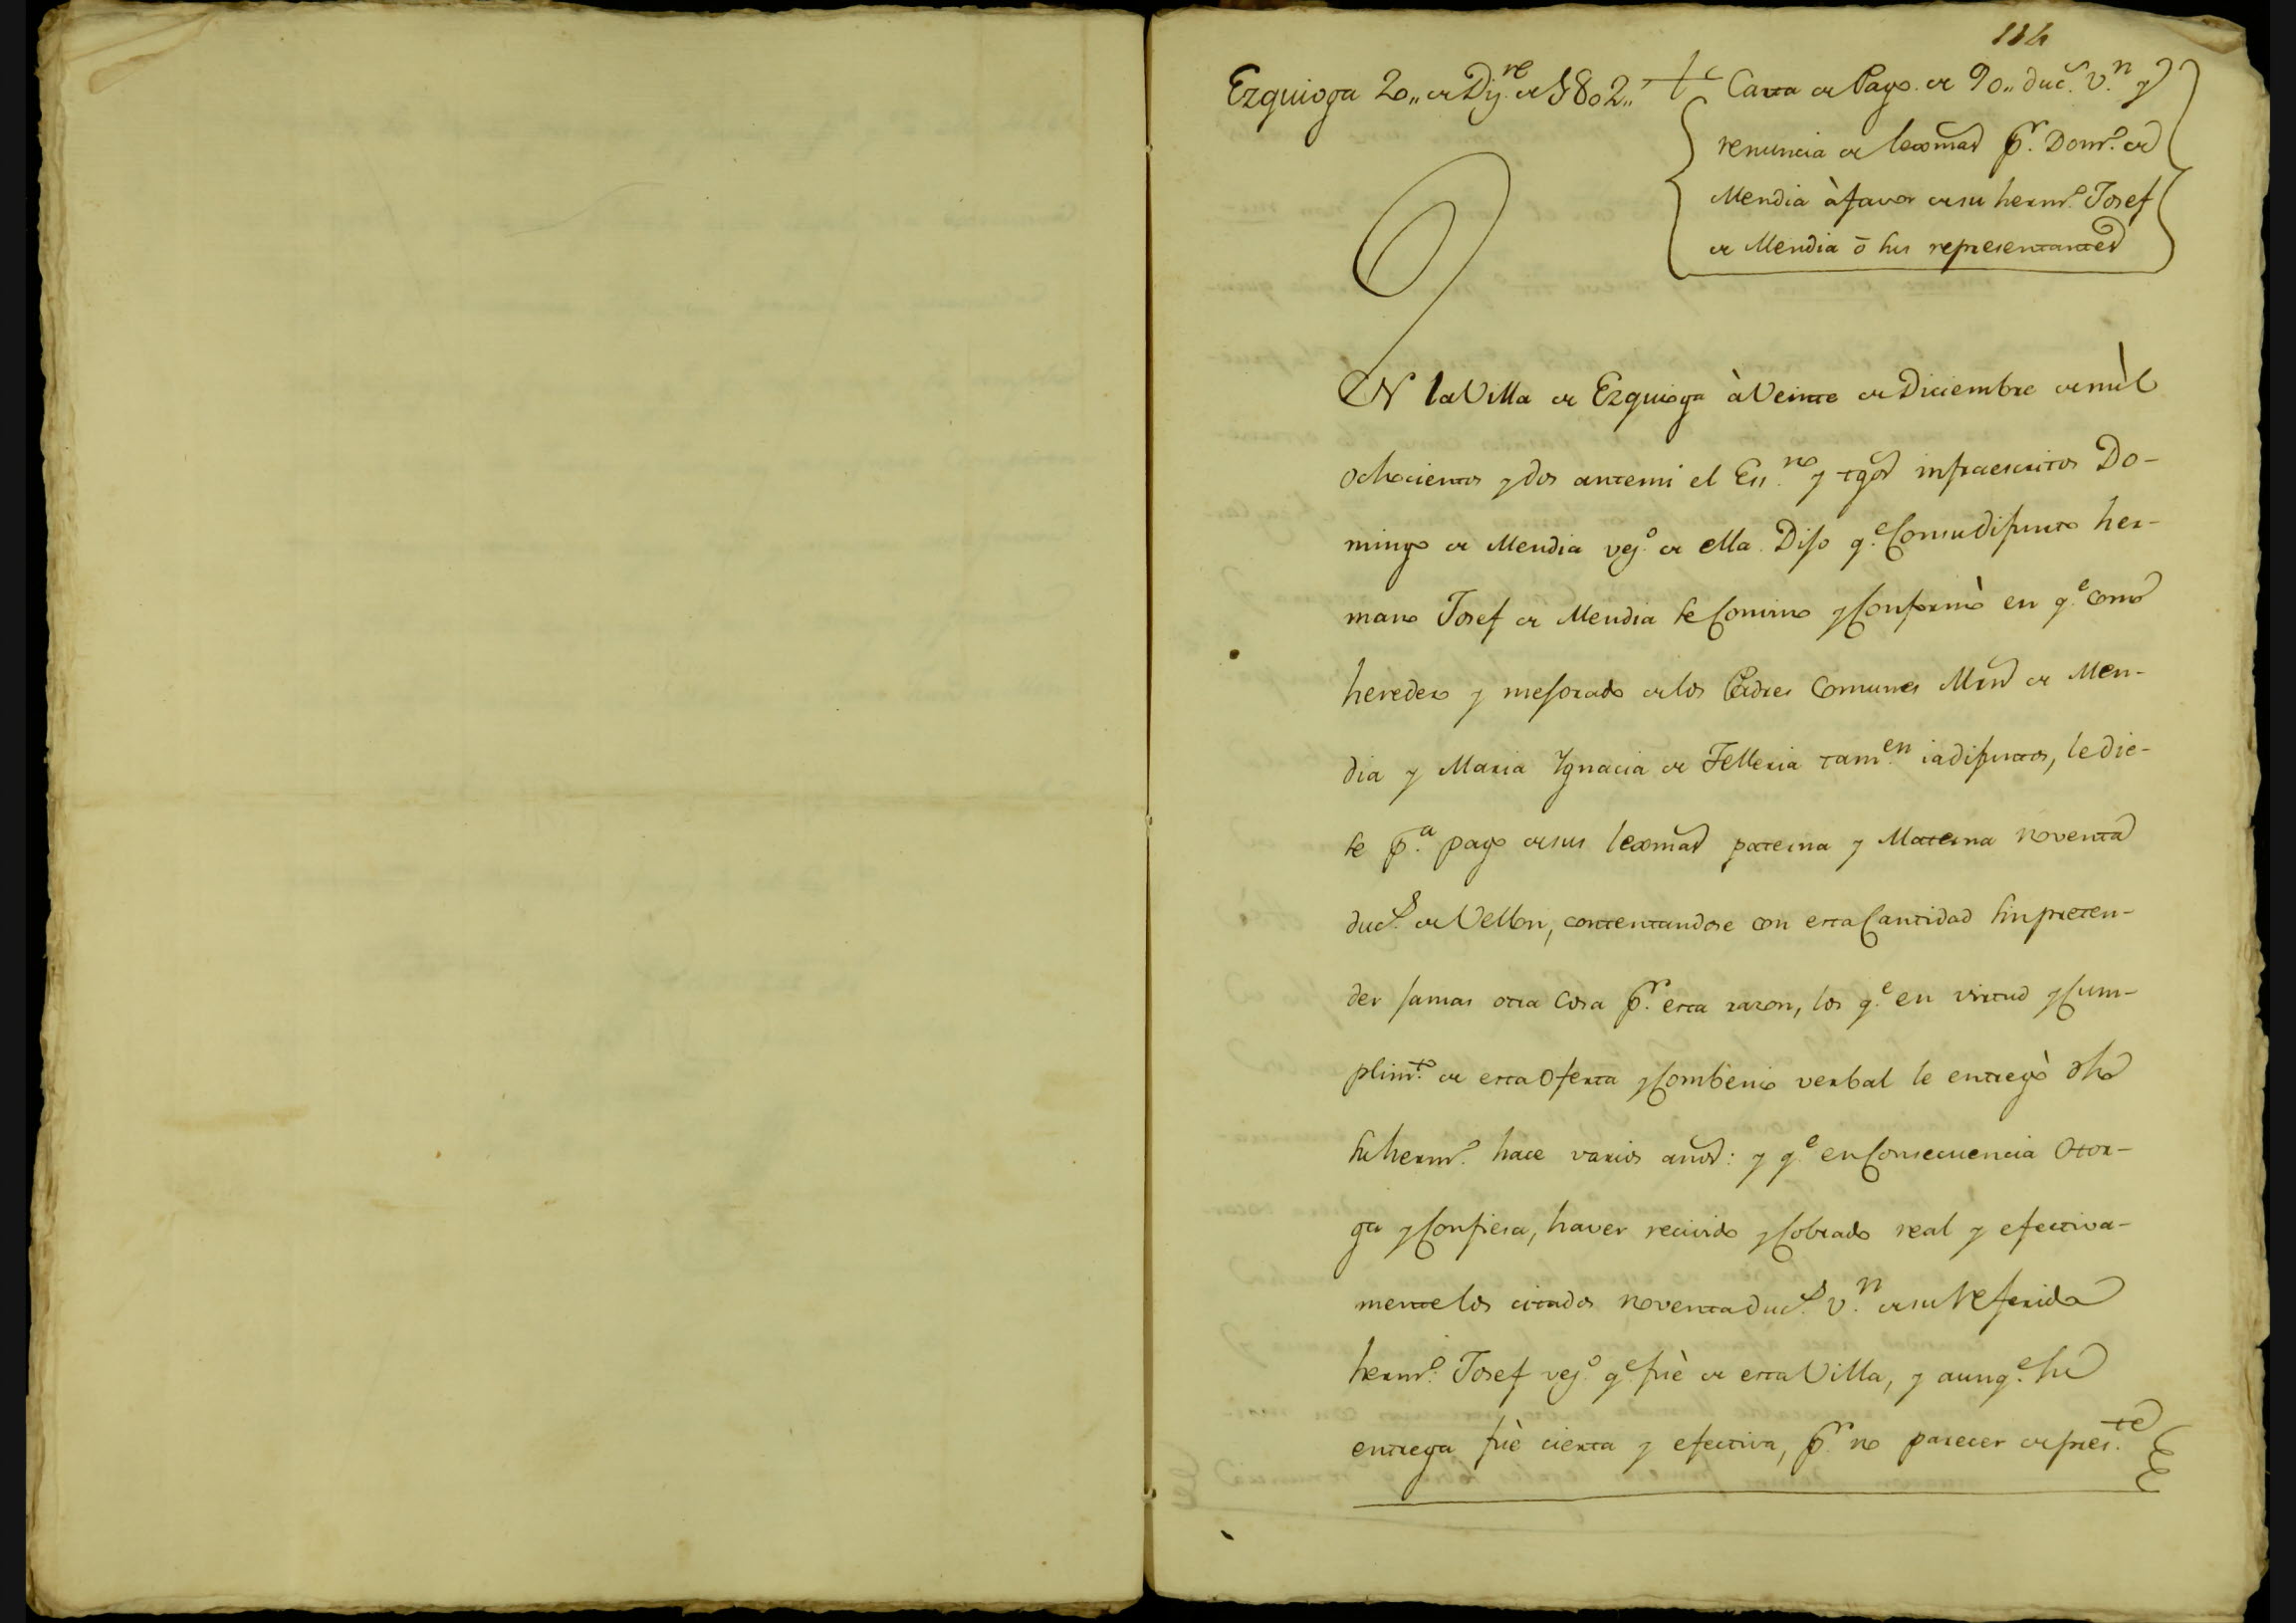 114
Ezquioga 20,, de Dij.re de 1802,, Carta de Pago de 90,, duc.s v.n y
renuncia de lexmas p.r Dom.o de
Mendia à favor de su herm.o Josef
de Mendia ō sus representantes
EN la Villa de Ezquioga à Veinte de Diciembre de mìl
ochocientos y dos antemi el Es.no y tgos infraescritos Do-
mingo de Mendia vej.o de ella Dijo q.e Con su difunto her-
mano Josef de Mendia se Convino y Conformò en q.e como
heredero y mejorado de los Padres Comunes Mrn de Men-
dia y Maria Ygnacia de Telleria tam.en ia difuntos, le die-
se p.a pago de sus lexmas paterna y Materna noventa
duc.s de Vellon, contentandose con esta Cantidad sin preten-
der jamas otra Cosa p.r esta razon, los q.e en virtud y Cum-
plim.to de esta Oferta y Combenio verbal le entregò dho
su herm.o hace varios años: y q.e en Consecuencia Otor-
ga y Confiesa, haver recivido y Cobrado real y efectiva-
mente los citados noventa duc.s v.n de su referido
herm.o Josef vej.o q.e fuè de esta Villa, y aunq.e su
entrega fuè cierta y efectiva, p.r no parecer de pres.te